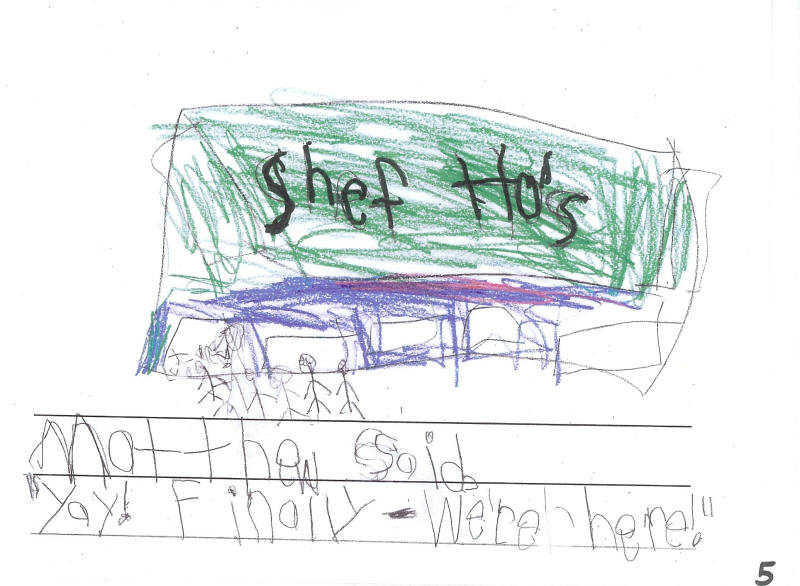 Shef Ho's
Matthew Said
"Yay! Finaly - We're here!"
5